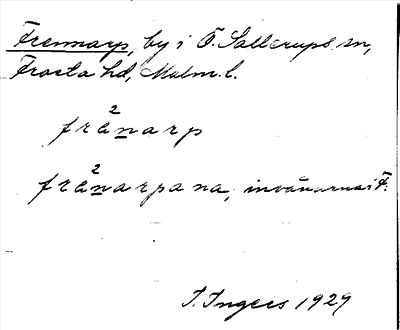 Frennarp, by i Ö. Sallerups sn,
Frosta hd, Malm. l.
2
fränarp
2
fränarpana, invånarna i F.
I. Ingers 1929